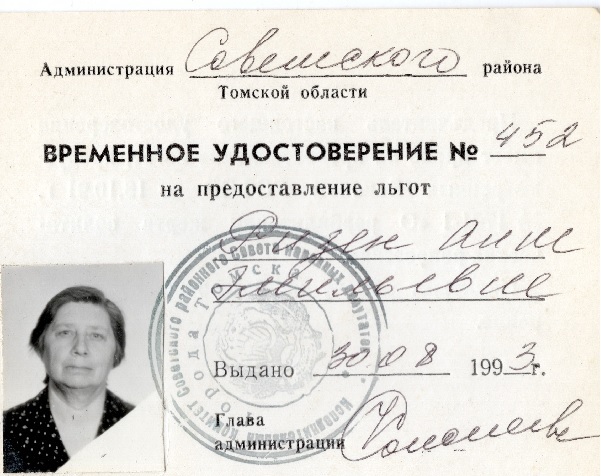 Администрация Советского района
Томской области
ВРЕМЕННОЕ УДОСТОВЕРЕНИЕ № 452
на предоставление льгот
Ризен Анне
Эмильевне
Исполнительный комитет Советского районного Совета народных депутатов
города Томска
Выдано 30 08 1993 г.
Глава
администрации